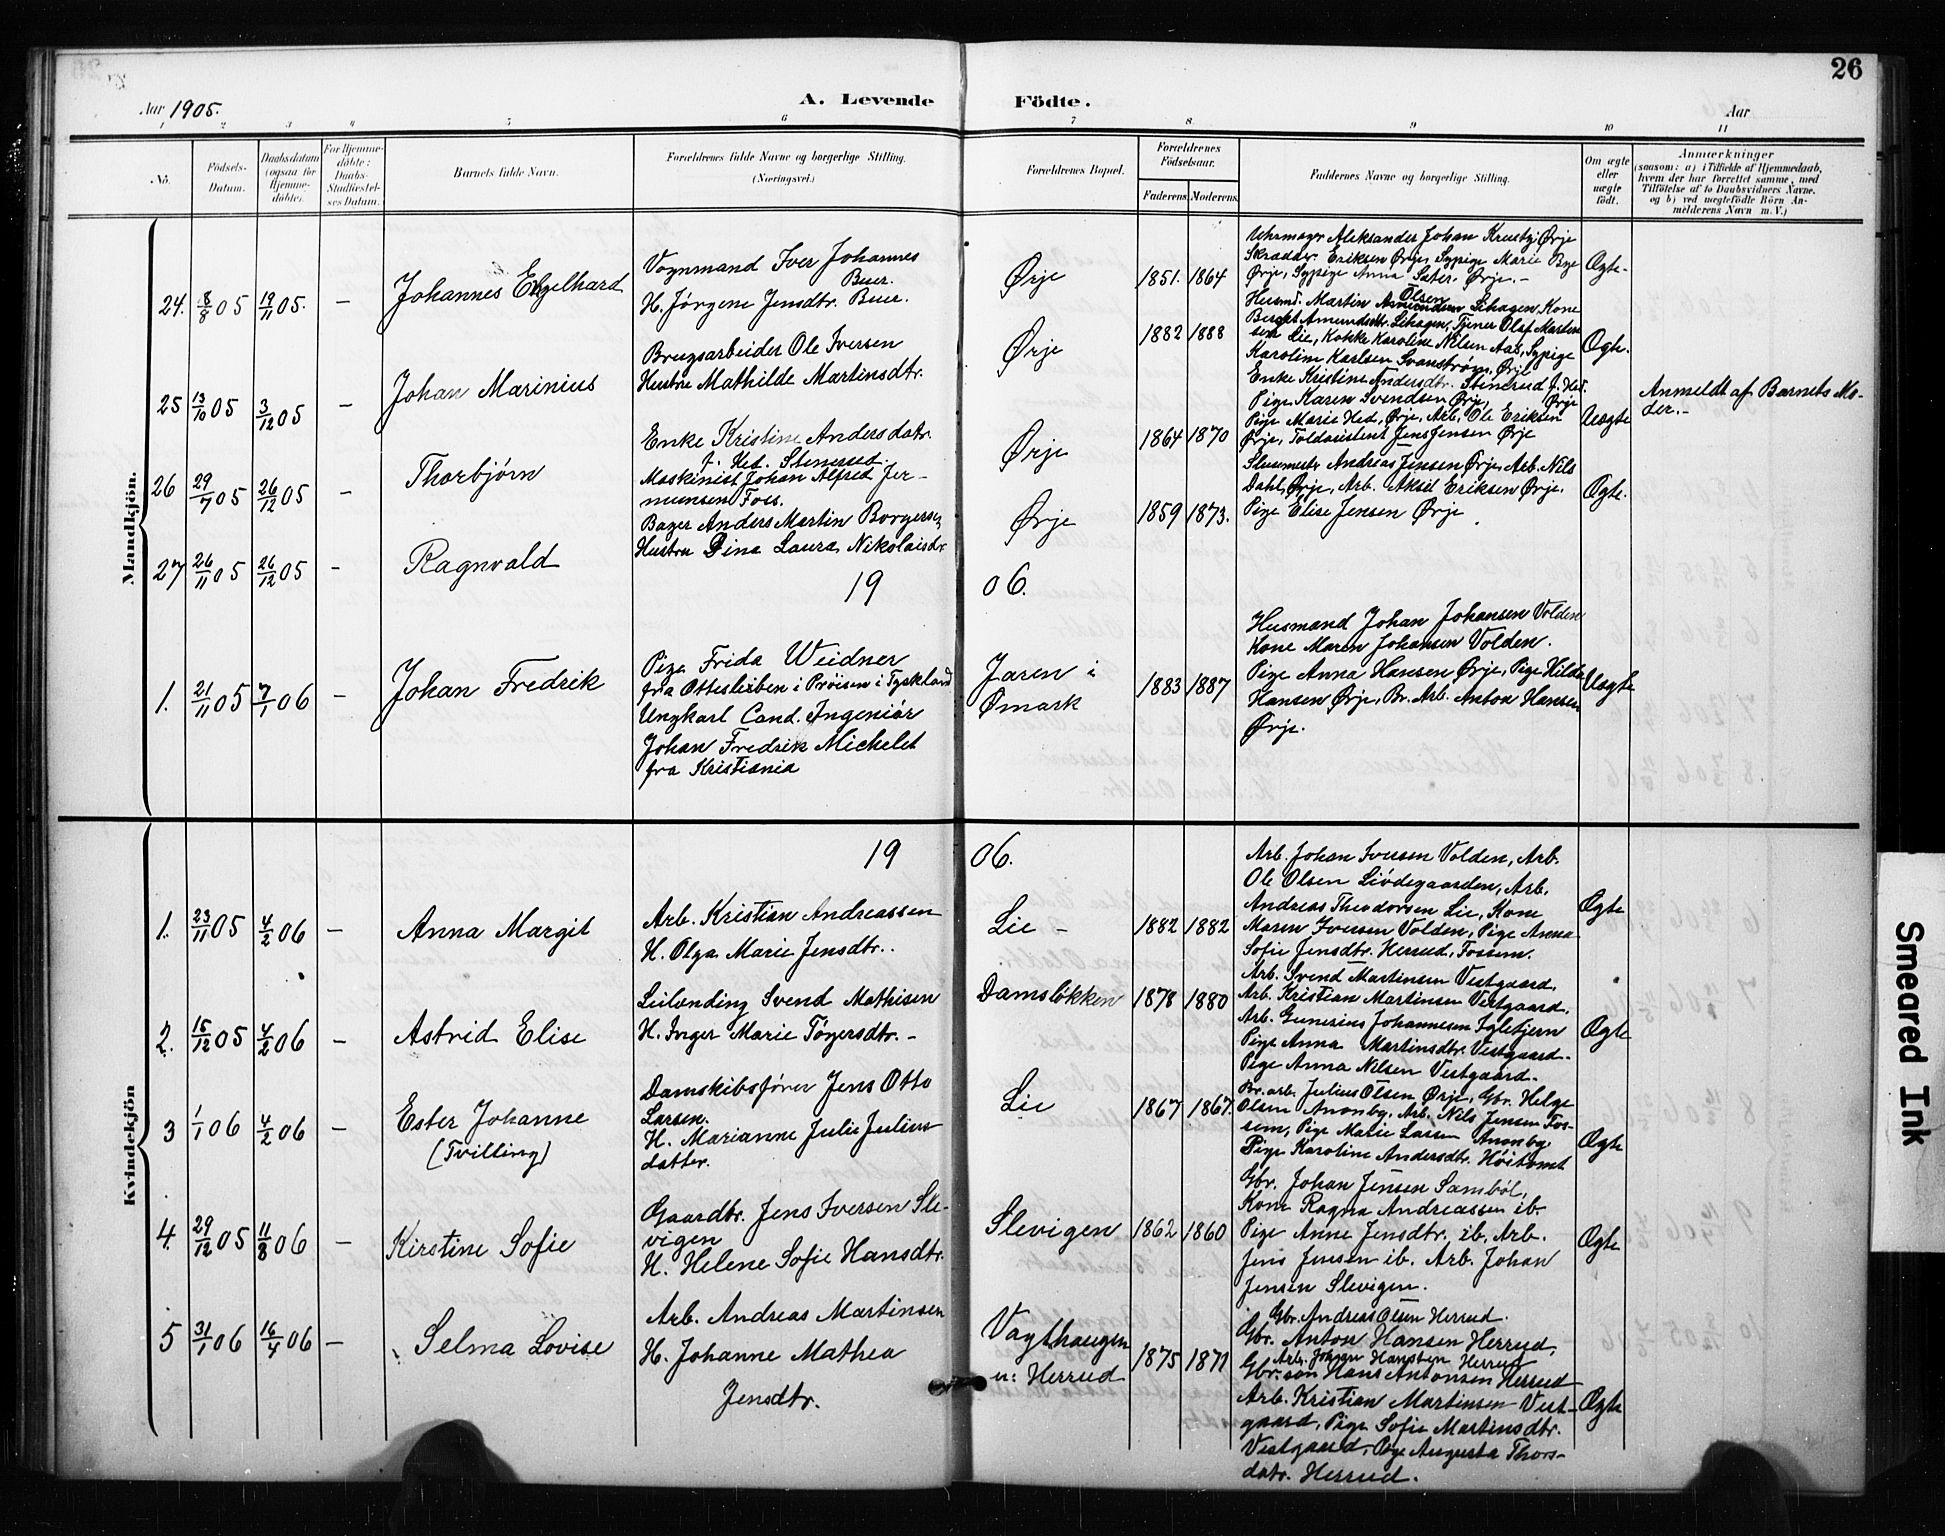 26
Aar 1905.
A. Levende Födte.
Aar
1 2 3 4 5 6 7 8. 9 10 11
No.
Födsels-
Datum.
Daabsdatum
(ogsaa for
Hjemme-
döbte).
For Hjemme-
döbte:
Daabs-
Stadfæstel-
ses Datum.
Barnets fulde Navn.
Forældrenes fulde Navne og borgerlige Stilling.
(Næringsvei.)
Forældrenes Bopæl.
Forældrenes
Födselsaar.
Faderens. Moderens.
Faddernes Navne og borgerlige Stilling.
Om ægte
eller
uægte
födt.
Anmærkninger
(saasom: a) i Tilfælde af Hjemmedaab,
hvem der har forrettet samme, med
Tilföielse af to Daabsvidners Navne,
og b) ved uægtefödte Börn An-
melderens Navn m. V.)
Mandkjön.
24. 8/8 05 19/11 05. —
Johannes Engelhard
Vognmand Iver Johannes
Buer.
H. Jørgene Jensdtr. Buer.
Ørje
1851. 1864
Uhrmager Aleksander Johan Krustj Ørje
Skrædder Eriksen Ørje, Sypige Marie Bye
Ørje, Sypige Anna Sater. Ørje. —
Ægte.
25 13/10 05 3/12 05 —
Johan Marinius
Brugsarbeider Ole Iversen
Hustru Mathilde Martinsdtr.
Ørje
1882 1888
Olsen
Husmd. Martin Amundsen Lihagen, Kone
Berthe Amundsdtr. Lihagen, Tjener Olaf Marten
sen Lie, Kokke Karoline Nilsen Aas, Sypige
Karoline Karlsen Svanstrøm, Ørje
Ægte.
26 29/7 05 26/12 05 —
Thorbjørn
Enke Kristine Andersdatr.
f. Hed. Stenerud.
Maskinist Johan Alfred Jer-
munsen Foss.
Ørje
1864 1870
Enke Kristine Andersdtr. Stenerud f. Hed.
Pige Karen Svendsen Ørje, Ørje
Pige Marie Hed, Ørje, Arb. Ole Eriksen
Ørje, Toldassistent Jens Jensen Ørje
Uægte
Anmeldt af Barnets Mo-
der. —
27 26/11 05 26/12 05 —
Ragnvald
Bager Anders Martin Borgersen
Hustru Dina Laura Nikolaisdr
Ørje
1859 1873.
Slusemestr Andreas Jensen Ørje, Arb. Nils
Dahl, Ørje, Arb. Aksel Eriksen Ørje,
Pige Elise Jensen Ørje
Ægte.
19 06.
1. 21/11 05 7/1 06 —
Johan Fredrik
Pige Frida Weidner
fra Ottesleiben i Prøisen i Tyskland
Ungkarl Cand. Ingeniør
Johan Fredrik Michelet
fra Kristiania
Jaren i
Ømark
1883 1887
Husmand Johan Johansen Volden
Kone Maren Johansen Volden.
Pige Anna Hansen Ørje, Pige Hilda
Hansen Ørje, Br. Arb. Anton Hansen
Ørje.
Uægte
Kvindekjön
19 06.
1. 23/11 05 4/2 06 —
Anna Margit
Arb. Kristian Andreassen
H. Olga Marie Jensdtr.
Lie —
1882 1882
Arb. Johan Iversen Volden, Arb.
Ole Olsen Liødegaarden, Arb.
Andreas Theodorsen Lie, Kone
Maren Iversen Volden, Pige Anna
Sofie Jensdtr. Herrud, Fossem.
Ægte
2. 15/12 05 4/2 06 —
Astrid Elise
Leilending Svend Mathisen
H. Inger Marie Tøgersdtr. —
Damsløkken
1878 1880
Arb. Svend Martinsen Vestgaard,
Arb. Kristian Martinsen Vestgaard,
Arb. Gunerius Johannesen Igletjern
Pige Anna Martinsdtr. Vestgaard.
Pige Anna Nilsen Vestgaard.
Ægte
3 1/1 06 4/2 06 —
Ester Johanne
(Tvilling)
Damskibsfører Jens Otto
Larsen.
H. Marianne Julie Julius-
datter.
Lie
1867 1867
Br. arb. Julius Olsen Ørje, Gbr. Helge
Olsen Anonby, Arb. Nils Jensen Fos-
sem, Pige Marie Larsen Anonby
Pige Karoline Andersdtr. Høitomt
Ægte
4. 29/12 05 11/8 06 —
Kirstine Sofie
Gaardbr. Jens Iversen Sle-
vigen
H. Helene Sofie Hansdtr.
Slevigen
1862 1860
Gbr. Johan Jensen Sambøl,
Kone Ragna Andreassen ib.
Pige Anne Jensdtr. ib, Arb.
Jens Jensen ib. Arb. Johan
Jensen Slevigen.
Ægte
5 31/1 06 16/4 06 —
Selma Lovise
Arb. Andreas Martinsen
H. Johanne Mathea
Jensdtr.
Vagthaugen
u: Herrud
1875 1871
Gbr. Andreas Olsen Herrud.
Gbr. Anton Hansen Herrud,
Arb. Johan Hansten Herrud
Gbr. søn Hans Antonsen Herrud
Arb. Kristian Martinsen Vest-
gaard, Pige Sofie Martinsdtr.
Vestgaard, Pige Augusta Thors-
datr. Herrud.
Ægte
Smeared Ink